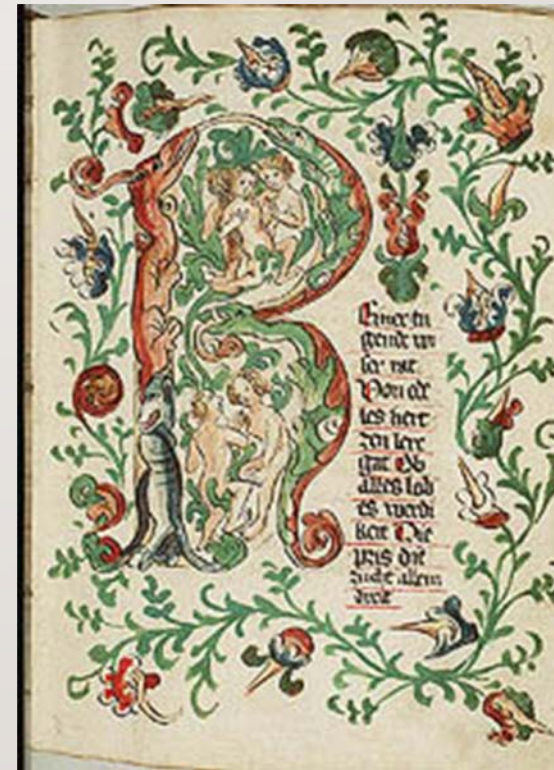 R
Einer tu
gende wi
ser rat
Von ede
les hert
zen lere
gat Ob
alles lob
es werdi
keit Die
pris die
zucht allein
treit